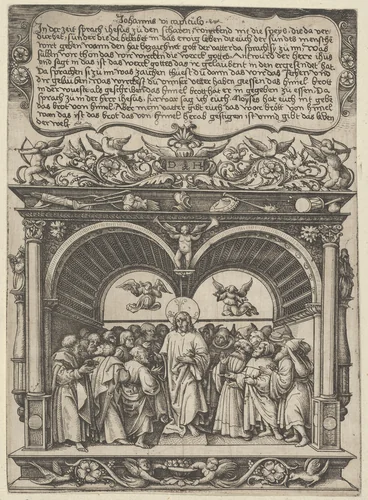 Johannis vi capitulo
In der zeit sprach ihesus zu den schaben würckend nit die speys die da ver
dürbet sunder die da bleibt in das ewig leben die euch der sun des menschē
würt geben wann den hat bezaichnet got der vatter da sprachē sy zu im was
sullen wir thondas wir würcken die werck gottes Antwurt der herr ihus
und sagt in das ist das werck gottes das ir gelaubent in den er gesendet hat
Da sprachen sy zu im was zaichen thuest du dann das wir das sehen und
dir gelauben was würckst du unser vätter haben geessen das himel brott
in der wüste als geschriben das himel brott hat er in gegeben zu essen Da
sprach zu in der herr ihesus fürwar sag ich euch Moyses hat euch nit gebē
das brot von himel Aber mein vatter gibt euch das wort brott von himel
wan das ist das brot das von himel herab gestigen ist unnd gibt das leben
der welt
D H